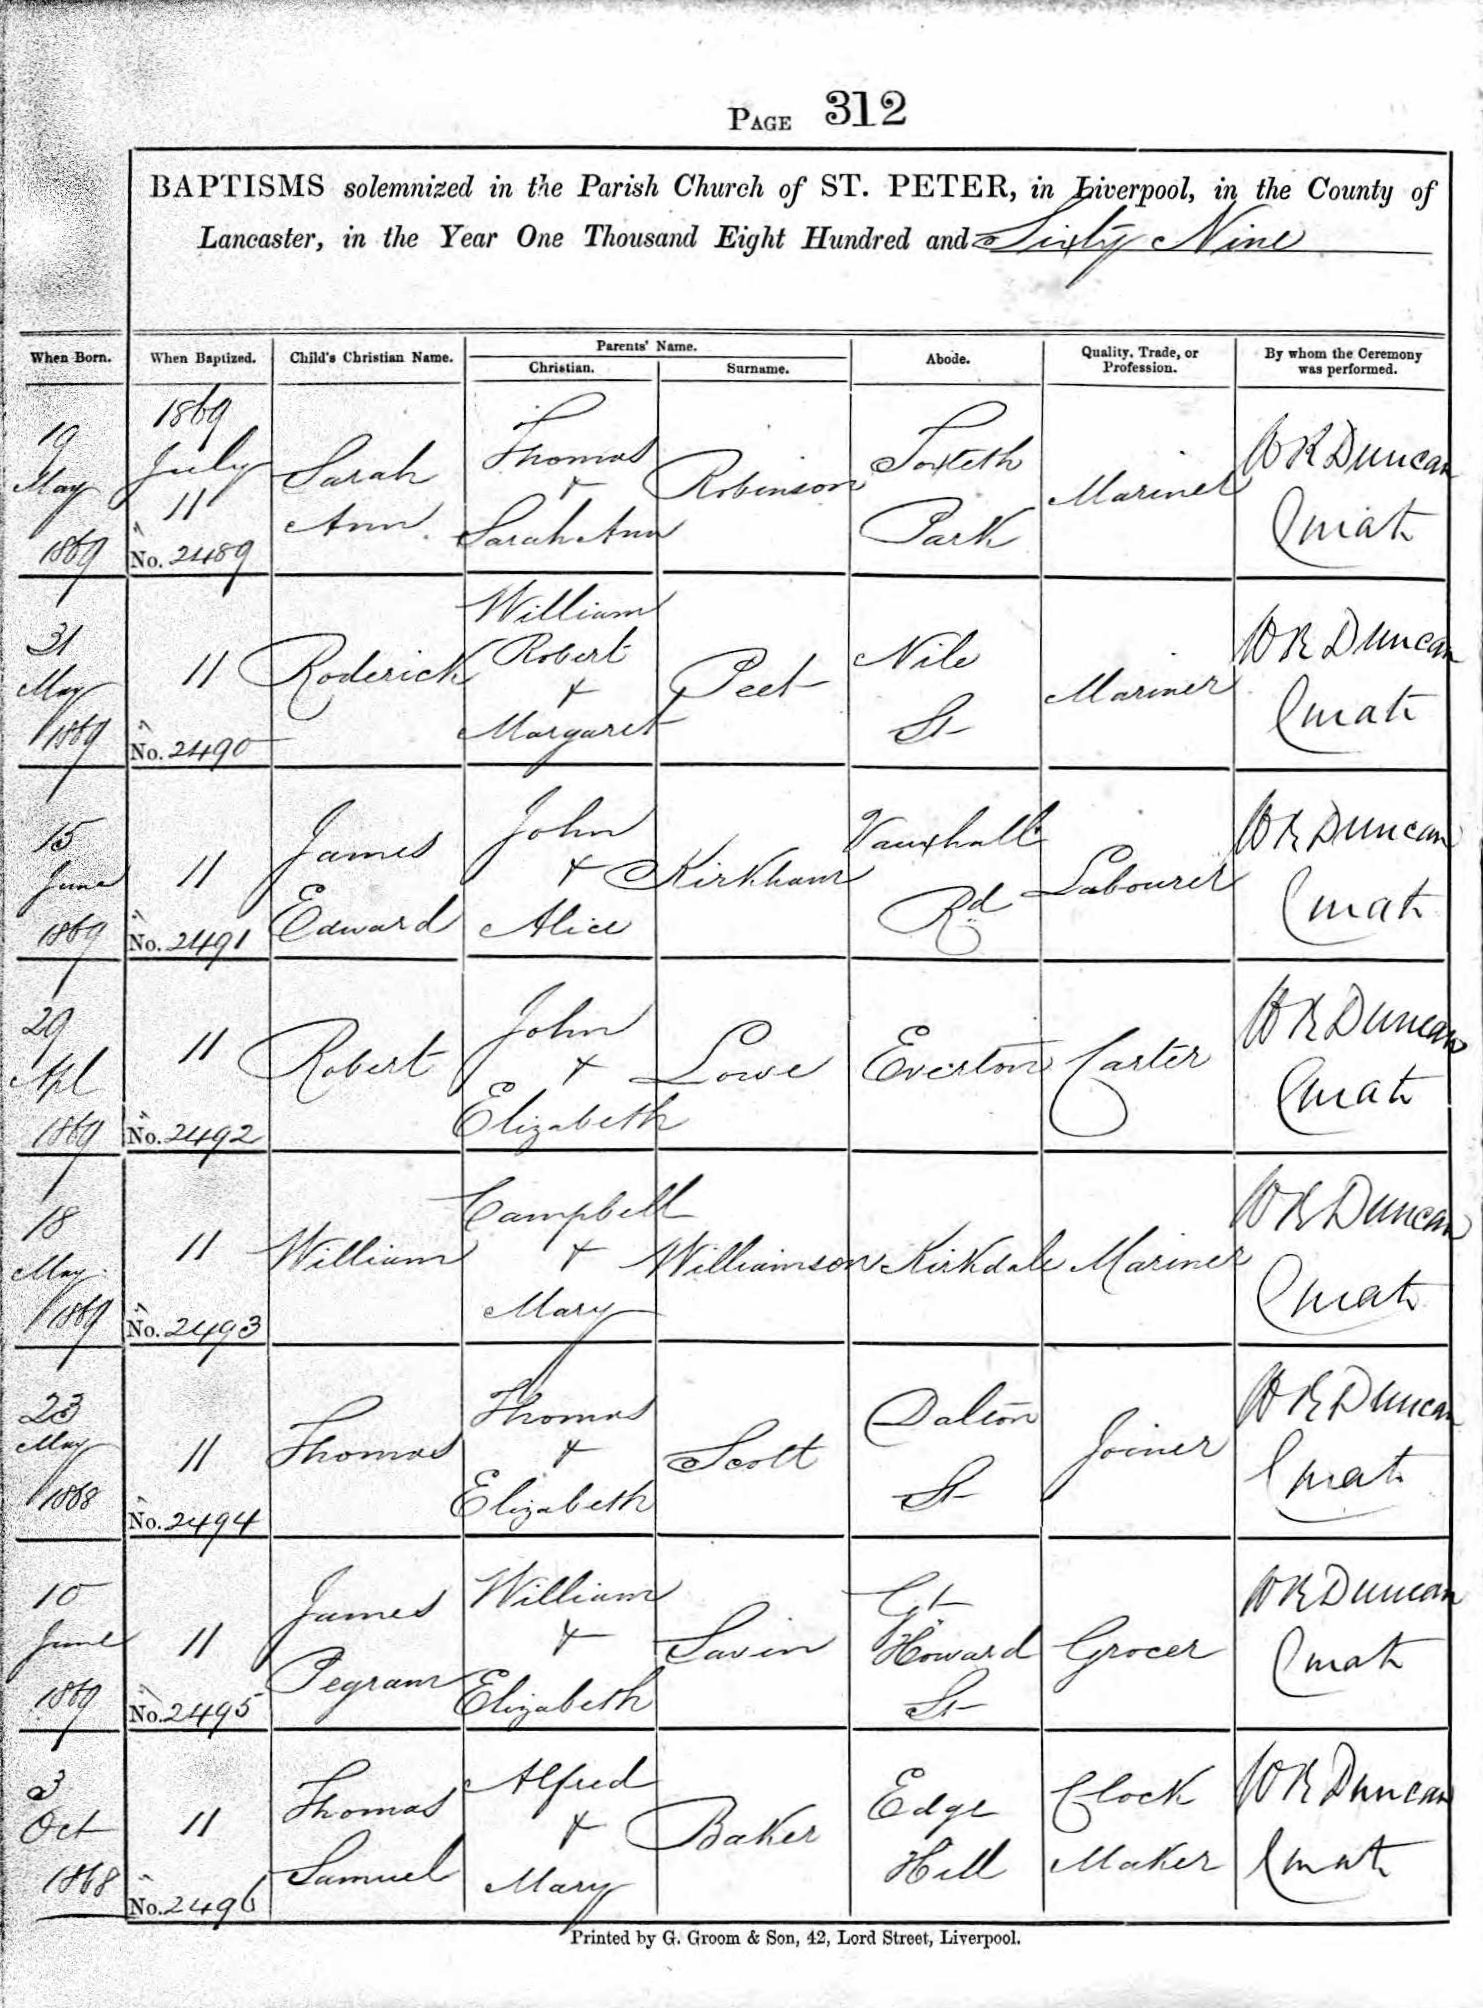 PAGE 312
BAPTISMS solemnized in the Parish Church of ST. PETER, in Liverpool, in the County of
Lancaster, in the Year One Thousand Eight Hundred and Sixty Nine
When Born.
When Baptized.
Child's Christian Name.
Parents' Name.
Christian.
Surname.
Abode.
Quality, Trade, or
Profession.
By whom the Ceremony
was performed.
19
May
1869
1869
July
11
No. 2489
Sarah
Ann
Thomas
+
Sarah Ann
Robinson
Toxteth
Park
Mariner
W R Duncan
Curate
31
May
1869
11
No. 2490
Roderick
William
Robert
+
Margaret
Peet
Nile
St
Mariner
W R Duncan
Curate
15
June
1869
11
No. 2491
James
Edward
John
+
Alice
Kirkham
Vauxhall
Rd
Labourer
W R Duncan
Curate
29
Apl
1869
11
No. 2492
Robert
John
+
Elizabeth
Lowe
Everton
Carter
W R Duncan
Curate
18
May
1869
11
No. 2493
William
Campbell
+
Mary
Williamson
Kirkdale
Mariner
W R Duncan
Curate
23
May
1868
11
No. 2494
Thomas
Thomas
+
Elizabeth
Scott
Dalton
St
Joiner
W R Duncan
Curate
10
June
1869
11
No. 2495
James
Pegram
William
+
Elizabeth
Savin
Gt
Howard
St
Grocer
W R Duncan
Curate
3
Oct
1868
11
No. 2496
Thomas
Samuel
Alfred
+
Mary
Baker
Edge
Hill
Clock
Maker
W R Duncan
Curate
Printed by G. Groom & Son, 42, Lord Street, Liverpool.